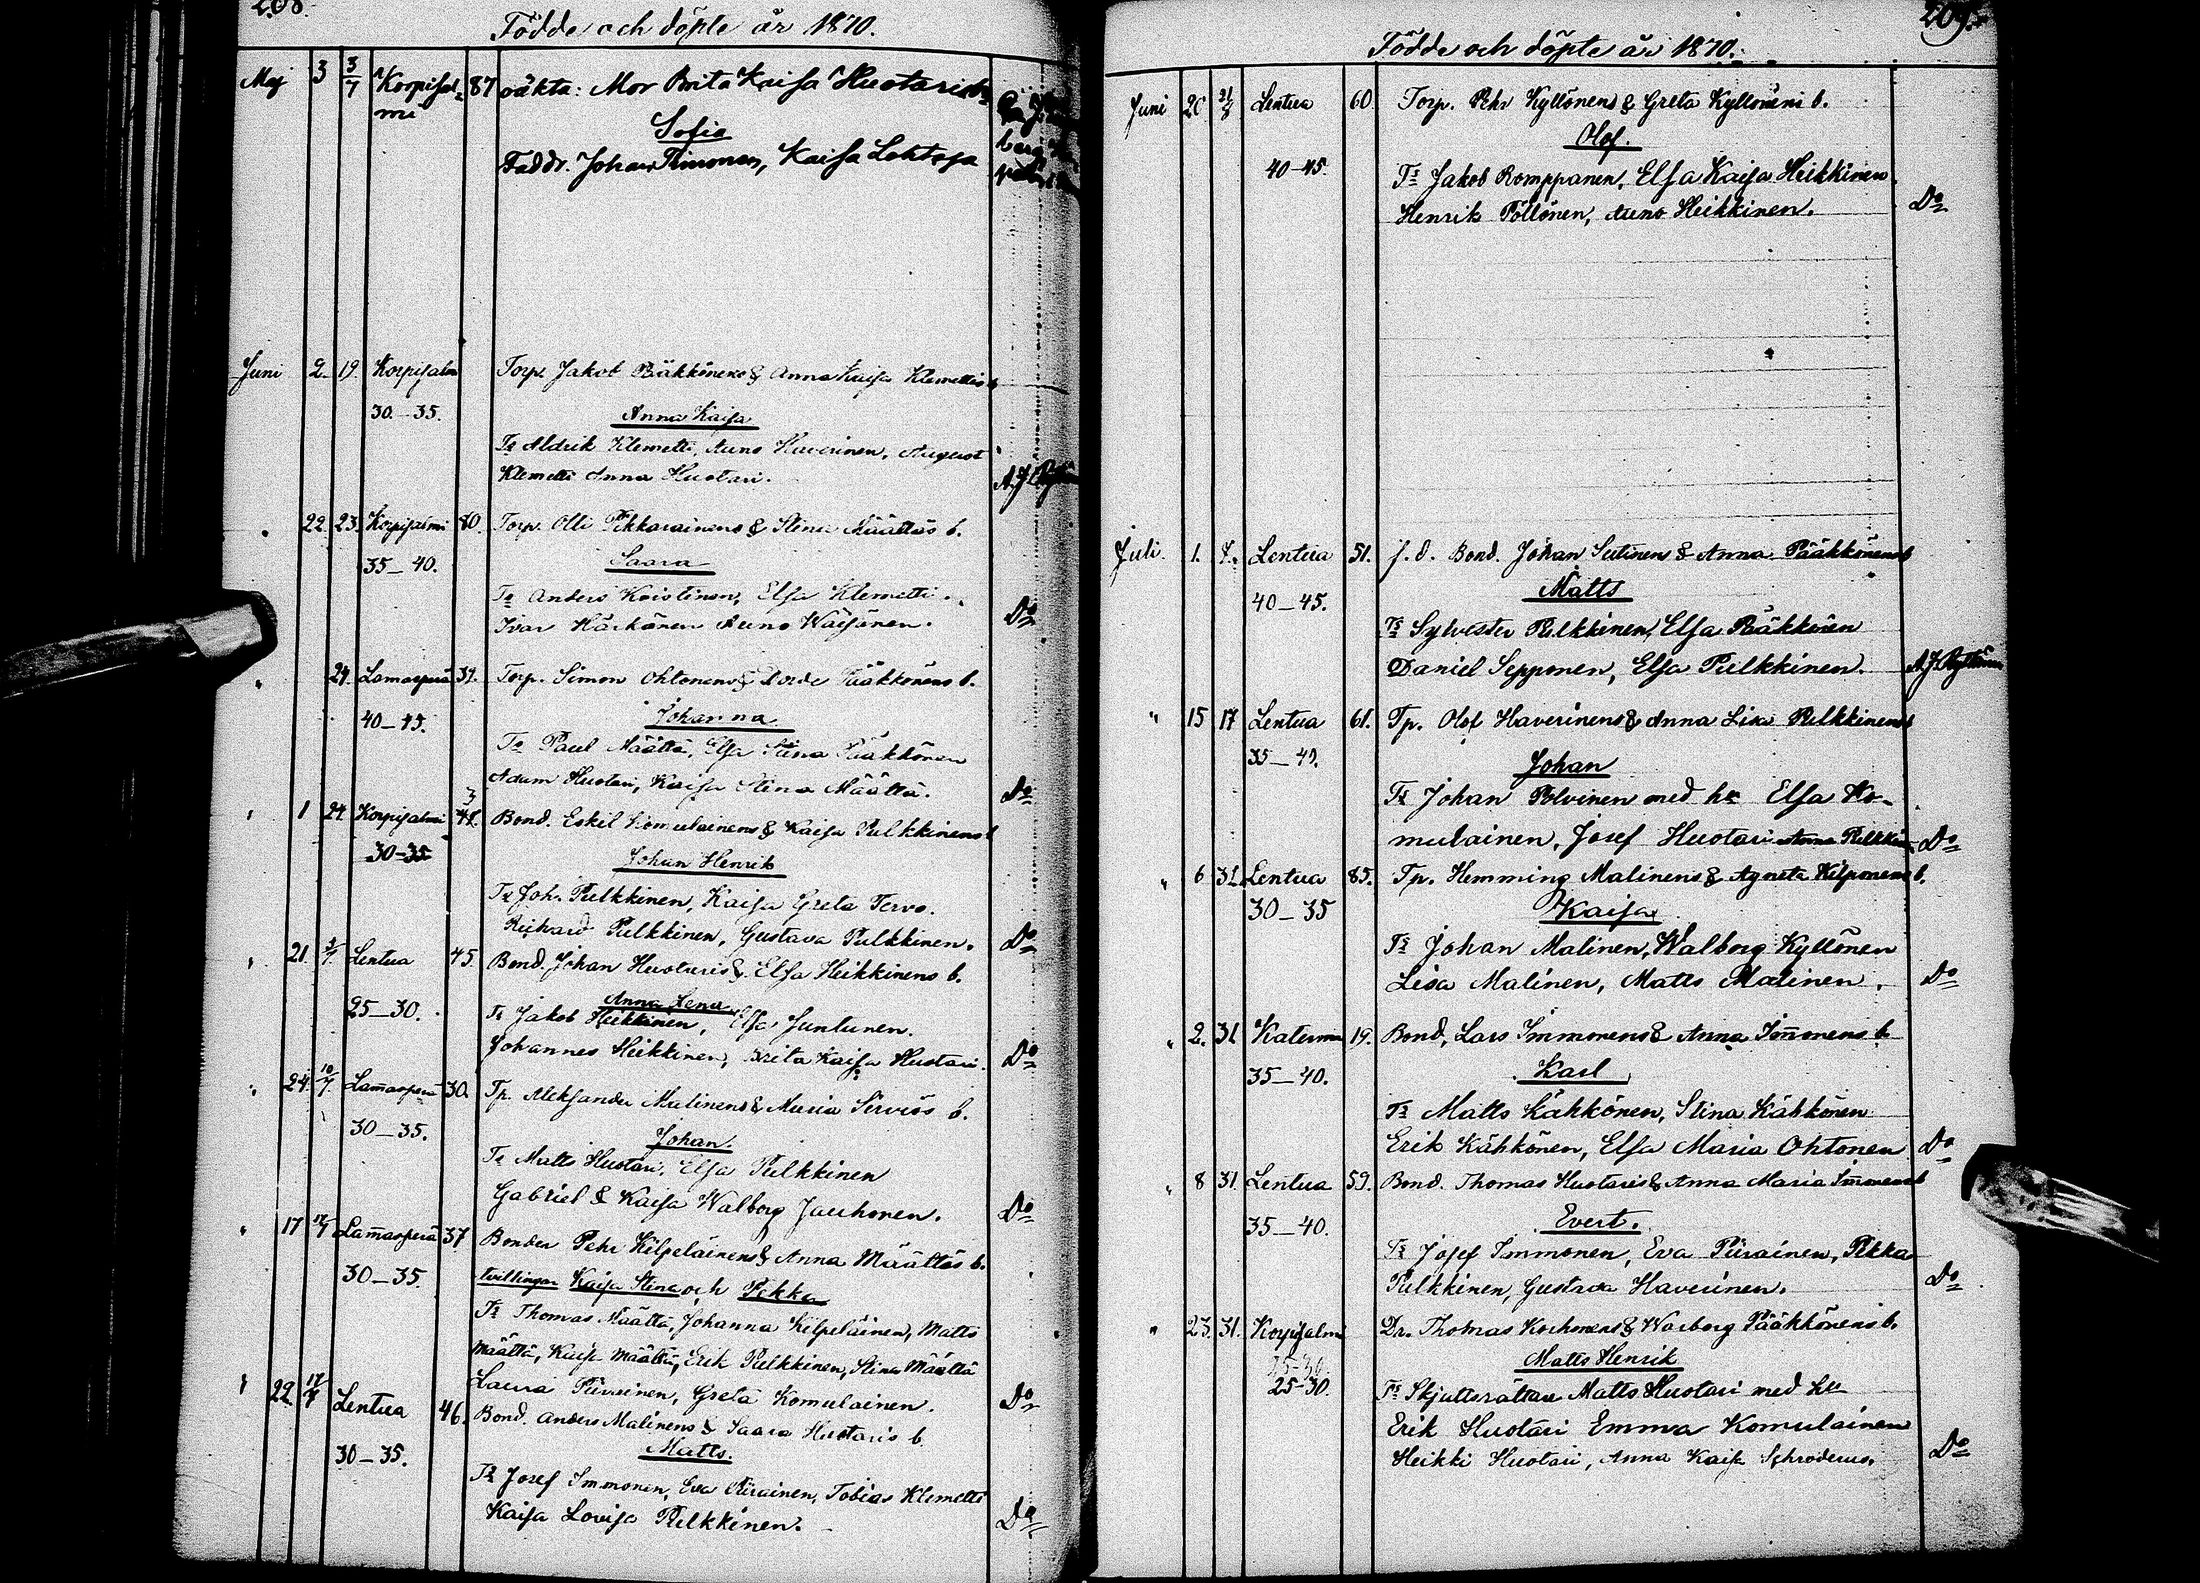 208.
Födde och döpte år 1870.
Maj 3 3/7 Korpisal= 87 oäkta: Mor Brita Kaisa Huotaris b.
mi
Sofia
Faddr. Johan Timonen, Kaisa Lehtoja
Juni 2. 19. Korpisalmi Torp. Jakob Pääkkönens & Anna Kaisa Klemettis b.
30–35.
Anna Kaisa
Ts Aldrik Klemetti, Auno Haverinen, August
Klemetti Anna Huotari.
22. 23. Korpisalmi 80. Torp. Olli Pikkarainens & Stina Määttäs b.
35–40.
Saara
Ts Anders Koistinen, Elsa Klemetti.
Ivar Härkönen Auno Wäisänen. Do
" 24. Lamasperä 39. Torp. Simon Ohtonens & Pääkkönens b.
40–45.
Johanna
Ts Paul Määttä, Elsa Stina Pääkkönen
Adam Huotari, Kaisa Stina Määttä. Do
" 1 24. Korpisalmi Bond. Eskil Komulainens & Kaisa Pulkkinens b
30–35
Johan Henrik
Ts Joh. Pulkkinen, Kaisa Greta Tervo.
Richard Pulkkinen, Gustava Pulkkinen. Do
" 21. 3/7. Lentua 45. Bond. Johan Huotaris & Elsa Heikkinens b.
25–30.
Anna Lena
Ts Jakob Heikkinen, Elsa Juntunen.
Johannes Heikkinen, Brita Kaisa Huotari. Do
" 24. 10/7. Lamasperä 30. Tp. Aleksander Malinens & Maria Serviös b.
30–35.
Johan.
Ts Matts Huotari, Elsa Pulkkinen
Gabriel & Kaisa Walborg Jauhonen. Do
" 17 17/7 Lamasperä 37 Bonden Pehr Kilpeläinens & Anna Määttäs b.
30–35.
tvillingar Kaisa Stina och Pekka
Ts Thomas Määttä, Johanna Kilpeläinen, Matts
Määttä, Kaisa Määttä, Erik Pulkkinen, Stina Määttä
Laura Piirainen, Greta Komulainen. Do
" 22. 17/7 Lentua 46. Bond. Anders Malinens & Saara Huotaris b.
30–35.
Matts.
Ts Josef Immonen, Eva Piirainen, Tobias Klemetti
Kaisa Lovisa Pulkkinen. Do
209.
Födde och döpte år 1870.
Juni 20. Lentua 60. Torp. Pehr Kyllönens & Greta Kyllönens b.
Olof.
40–45. Ts Jakob Romppanen, Elsa Kaisa Heikkinen
Henrik Pöllönen, Auno Heikkinen. Do
Juli. 1. 7. Lentua 51. f. d. Bond. Johan Sutinens & Anna Pääkkönens b
40–45.
Matts
Ts Sylvester Pulkkinen, Elsa Pääkkönen
Daniel Sepponen, Elsa Pulkkinen.
" 15 17 Lentua 61. Tp. Olof Haverinens & Anna Lisa Pulkkinens b
35–40.
Johan
Ts Johan Polvinen med hu Elsa Ko-
mulainen, Josef Huotari Anna Pulkkinen Do
" 6 31. Lentua 85. Tp. Hemming Malinens & Agneta Kilponens b.
30–35
Kaisa
Ts Johan Malinen, Walborg Kyllönen
Lisa Malinen, Matts Malinen. Do
" 2. 31 Katerma 19. Bond. Lars Immonens & Anna Immonens b.
35–40.
Karl
Ts Matts Kähkönen, Stina Kähkönen
Erik Kähkönen, Elsa Maria Ohtonen Do
" 8 31. Lentua 59. Bond. Thomas Huotaris & Anna Maria Immonens b
35–40.
Evert.
Ts Josef Immonen, Eva Piirainen, Pekka
Pulkkinen, Gustava Haverinen. Do
" 23. 31. Korpisalmi Dr. Thomas Korhonens & Warborg Pääkkönens b.
25–30
25–30.
Matts Henrik
Ts Skjuttsrättare Matts Huotari med hu
Erik Huotari Emma Komulainen
Heikki Huotari, Anna Kaisa Schroderus. Do